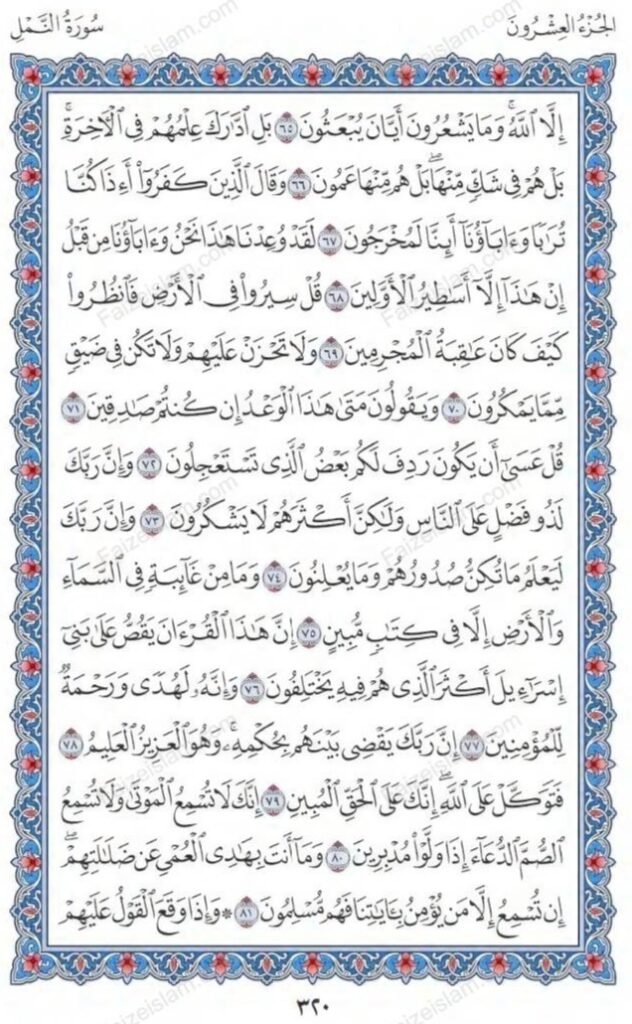 الجُزْءُ العِشْرُونَ
سُورَةُ النَّمْلِ
إِلَّا اللَّهُ ۚ وَمَا يَشْعُرُونَ أَيَّانَ يُبْعَثُونَ ٦٥ بَلِ ادَّارَكَ عِلْمُهُمْ فِي الْآخِرَةِ ۚ
بَلْ هُمْ فِي شَكٍّ مِّنْهَا ۖ بَلْ هُم مِّنْهَا عَمُونَ ٦٦ وَقَالَ الَّذِينَ كَفَرُوا أَإِذَا كُنَّا
تُرَابًا وَءَابَاؤُنَا أَئِنَّا لَمُخْرَجُونَ ٦٧ لَقَدْ وُعِدْنَا هَٰذَا نَحْنُ وَءَابَاؤُنَا مِن قَبْلُ
إِنْ هَٰذَا إِلَّا أَسَاطِيرُ الْأَوَّلِينَ ٦٨ قُلْ سِيرُوا فِي الْأَرْضِ فَانظُرُوا
كَيْفَ كَانَ عَاقِبَةُ الْمُجْرِمِينَ ٦٩ وَلَا تَحْزَنْ عَلَيْهِمْ وَلَا تَكُن فِي ضَيْقٍ
مِّمَّا يَمْكُرُونَ ٧٠ وَيَقُولُونَ مَتَىٰ هَٰذَا الْوَعْدُ إِن كُنتُمْ صَادِقِينَ ٧١
قُلْ عَسَىٰ أَن يَكُونَ رَدِفَ لَكُم بَعْضُ الَّذِي تَسْتَعْجِلُونَ ٧٢ وَإِنَّ رَبَّكَ
لَذُو فَضْلٍ عَلَى النَّاسِ وَلَٰكِنَّ أَكْثَرَهُمْ لَا يَشْكُرُونَ ٧٣ وَإِنَّ رَبَّكَ
لَيَعْلَمُ مَا تُكِنُّ صُدُورُهُمْ وَمَا يُعْلِنُونَ ٧٤ وَمَا مِنْ غَائِبَةٍ فِي السَّمَاءِ
وَالْأَرْضِ إِلَّا فِي كِتَابٍ مُّبِينٍ ٧٥ إِنَّ هَٰذَا الْقُرْءَانَ يَقُصُّ عَلَىٰ بَنِي
إِسْرَاءِيلَ أَكْثَرَ الَّذِي هُمْ فِيهِ يَخْتَلِفُونَ ٧٦ وَإِنَّهُ لَهُدًى وَرَحْمَةٌ
لِّلْمُؤْمِنِينَ ٧٧ إِنَّ رَبَّكَ يَقْضِي بَيْنَهُم بِحُكْمِهِ ۚ وَهُوَ الْعَزِيزُ الْعَلِيمُ ٧٨
فَتَوَكَّلْ عَلَى اللَّهِ ۖ إِنَّكَ عَلَى الْحَقِّ الْمُبِينِ ٧٩ إِنَّكَ لَا تُسْمِعُ الْمَوْتَىٰ وَلَا تُسْمِعُ
الصُّمَّ الدُّعَاءَ إِذَا وَلَّوْا مُدْبِرِينَ ٨٠ وَمَا أَنتَ بِهَادِي الْعُمْيِ عَن ضَلَالَتِهِمْ ۖ
إِن تُسْمِعُ إِلَّا مَن يُؤْمِنُ بِـَٔايَاتِنَا فَهُم مُّسْلِمُونَ ٨١ ۞ وَإِذَا وَقَعَ الْقَوْلُ عَلَيْهِمْ
٣٢٠
Faizeislam.com